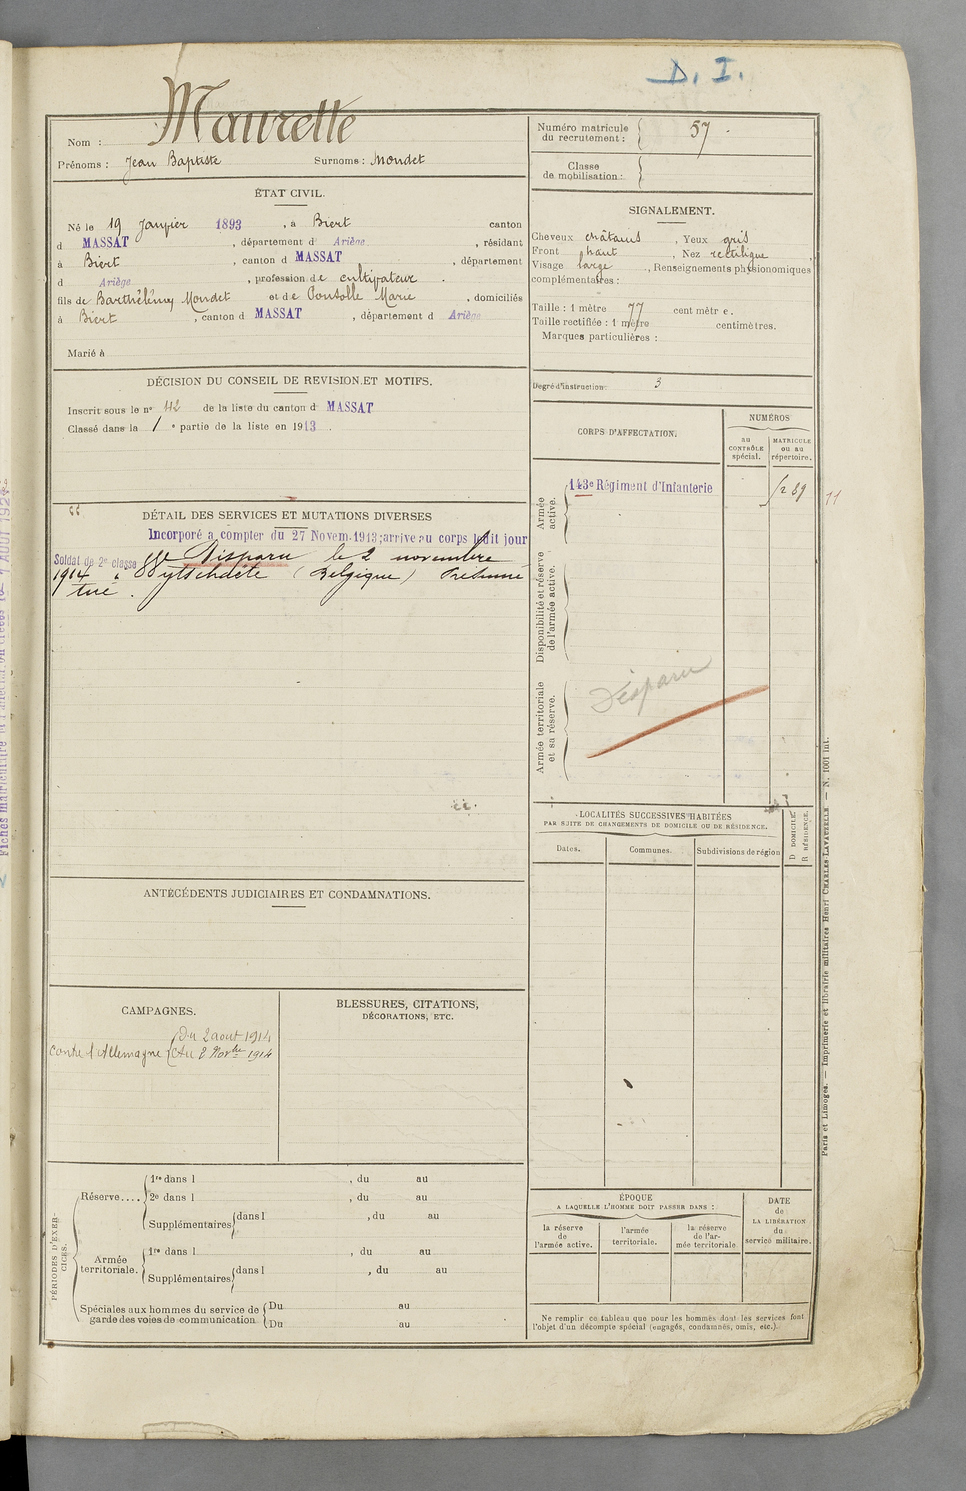 D. I.
Nom : Maurette
Prénoms : Jean Baptiste Surnoms : Mondet
ÉTAT CIVIL.
Né le 19 Janvier 1893, à Biert canton
d MASSAT, département d Ariège, résidant
à Biert, canton d MASSAT, département
d Ariège, profession de cultivateur.
fils de Barthélémy Mondet et de Consolle Marie, domiciliés
à Biert, canton d MASSAT, département d Ariège
Marié à
DÉCISION DU CONSEIL DE REVISION ET MOTIFS.
Inscrit sous le n° 42 de la liste du canton d MASSAT
Classé dans la 1 e partie de la liste en 1913.
DÉTAIL DES SERVICES ET MUTATIONS DIVERSES
Incorporé a compter du 27 Novem. 1913; arrive au corps ledit jour
Soldat de 2e classe Disparu le 2 novembre
1914 à Wytschaete (Belgique) Présumé
tué.
ANTÉCÉDENTS JUDICIAIRES ET CONDAMNATIONS.
CAMPAGNES.
Contre l'Allemagne
Du 2 aout 1914
Au 2 Novbre 1914
BLESSURES, CITATIONS,
DÉCORATIONS, ETC.
PÉRIODES D'EXERCICES.
Réserve....
1re dans l , du au
2e dans l , du au
Supplémentaires dans l , du au
Armée territoriale.
1re dans l , du au
Supplémentaires dans l , du au
Spéciales aux hommes du service de
garde des voies de communication
Du au
Du au
Numéro matricule
du recrutement : 57.
Classe
de mobilisation :
SIGNALEMENT.
Cheveux châtains, Yeux gris
Front haut, Nez rectiligne,
Visage large, Renseignements physionomiques
complémentaires :
Taille : 1 mètre 77 centimètre.
Taille rectifiée : 1 mètre centimètres.
Marques particulières :
Degré d'instruction : 3
CORPS D'AFFECTATION.
NUMÉROS
au
CONTRÔLE
spécial.
MATRICULE
ou au
répertoire.
Armée
active.
143e Régiment d'Infanterie
11
Disponibilité et réserve
de l'armée active.
Armée territoriale
et sa réserve.
Disparu
LOCALITÉS SUCCESSIVES HABITÉES
PAR SUITE DE CHANGEMENTS DE DOMICILE OU DE RÉSIDENCE.
Dates. Communes. Subdivisions de région
D DOMICILE.
R RÉSIDENCE.
ÉPOQUE
A LAQUELLE L'HOMME DOIT PASSER DANS :
la réserve
de
l'armée active.
l'armée
territoriale.
la réserve
de l'ar-
mée territoriale
DATE
de
LA LIBÉRATION
du
service militaire.
Ne remplir ce tableau que pour les hommes dont les services font
l'objet d'un décompte spécial (engagés, condamnés, omis, etc.).
Paris et Limoges. — Imprimerie et librairie militaires Henri CHARLES-LAVAUZELLE — N. 1001 int.